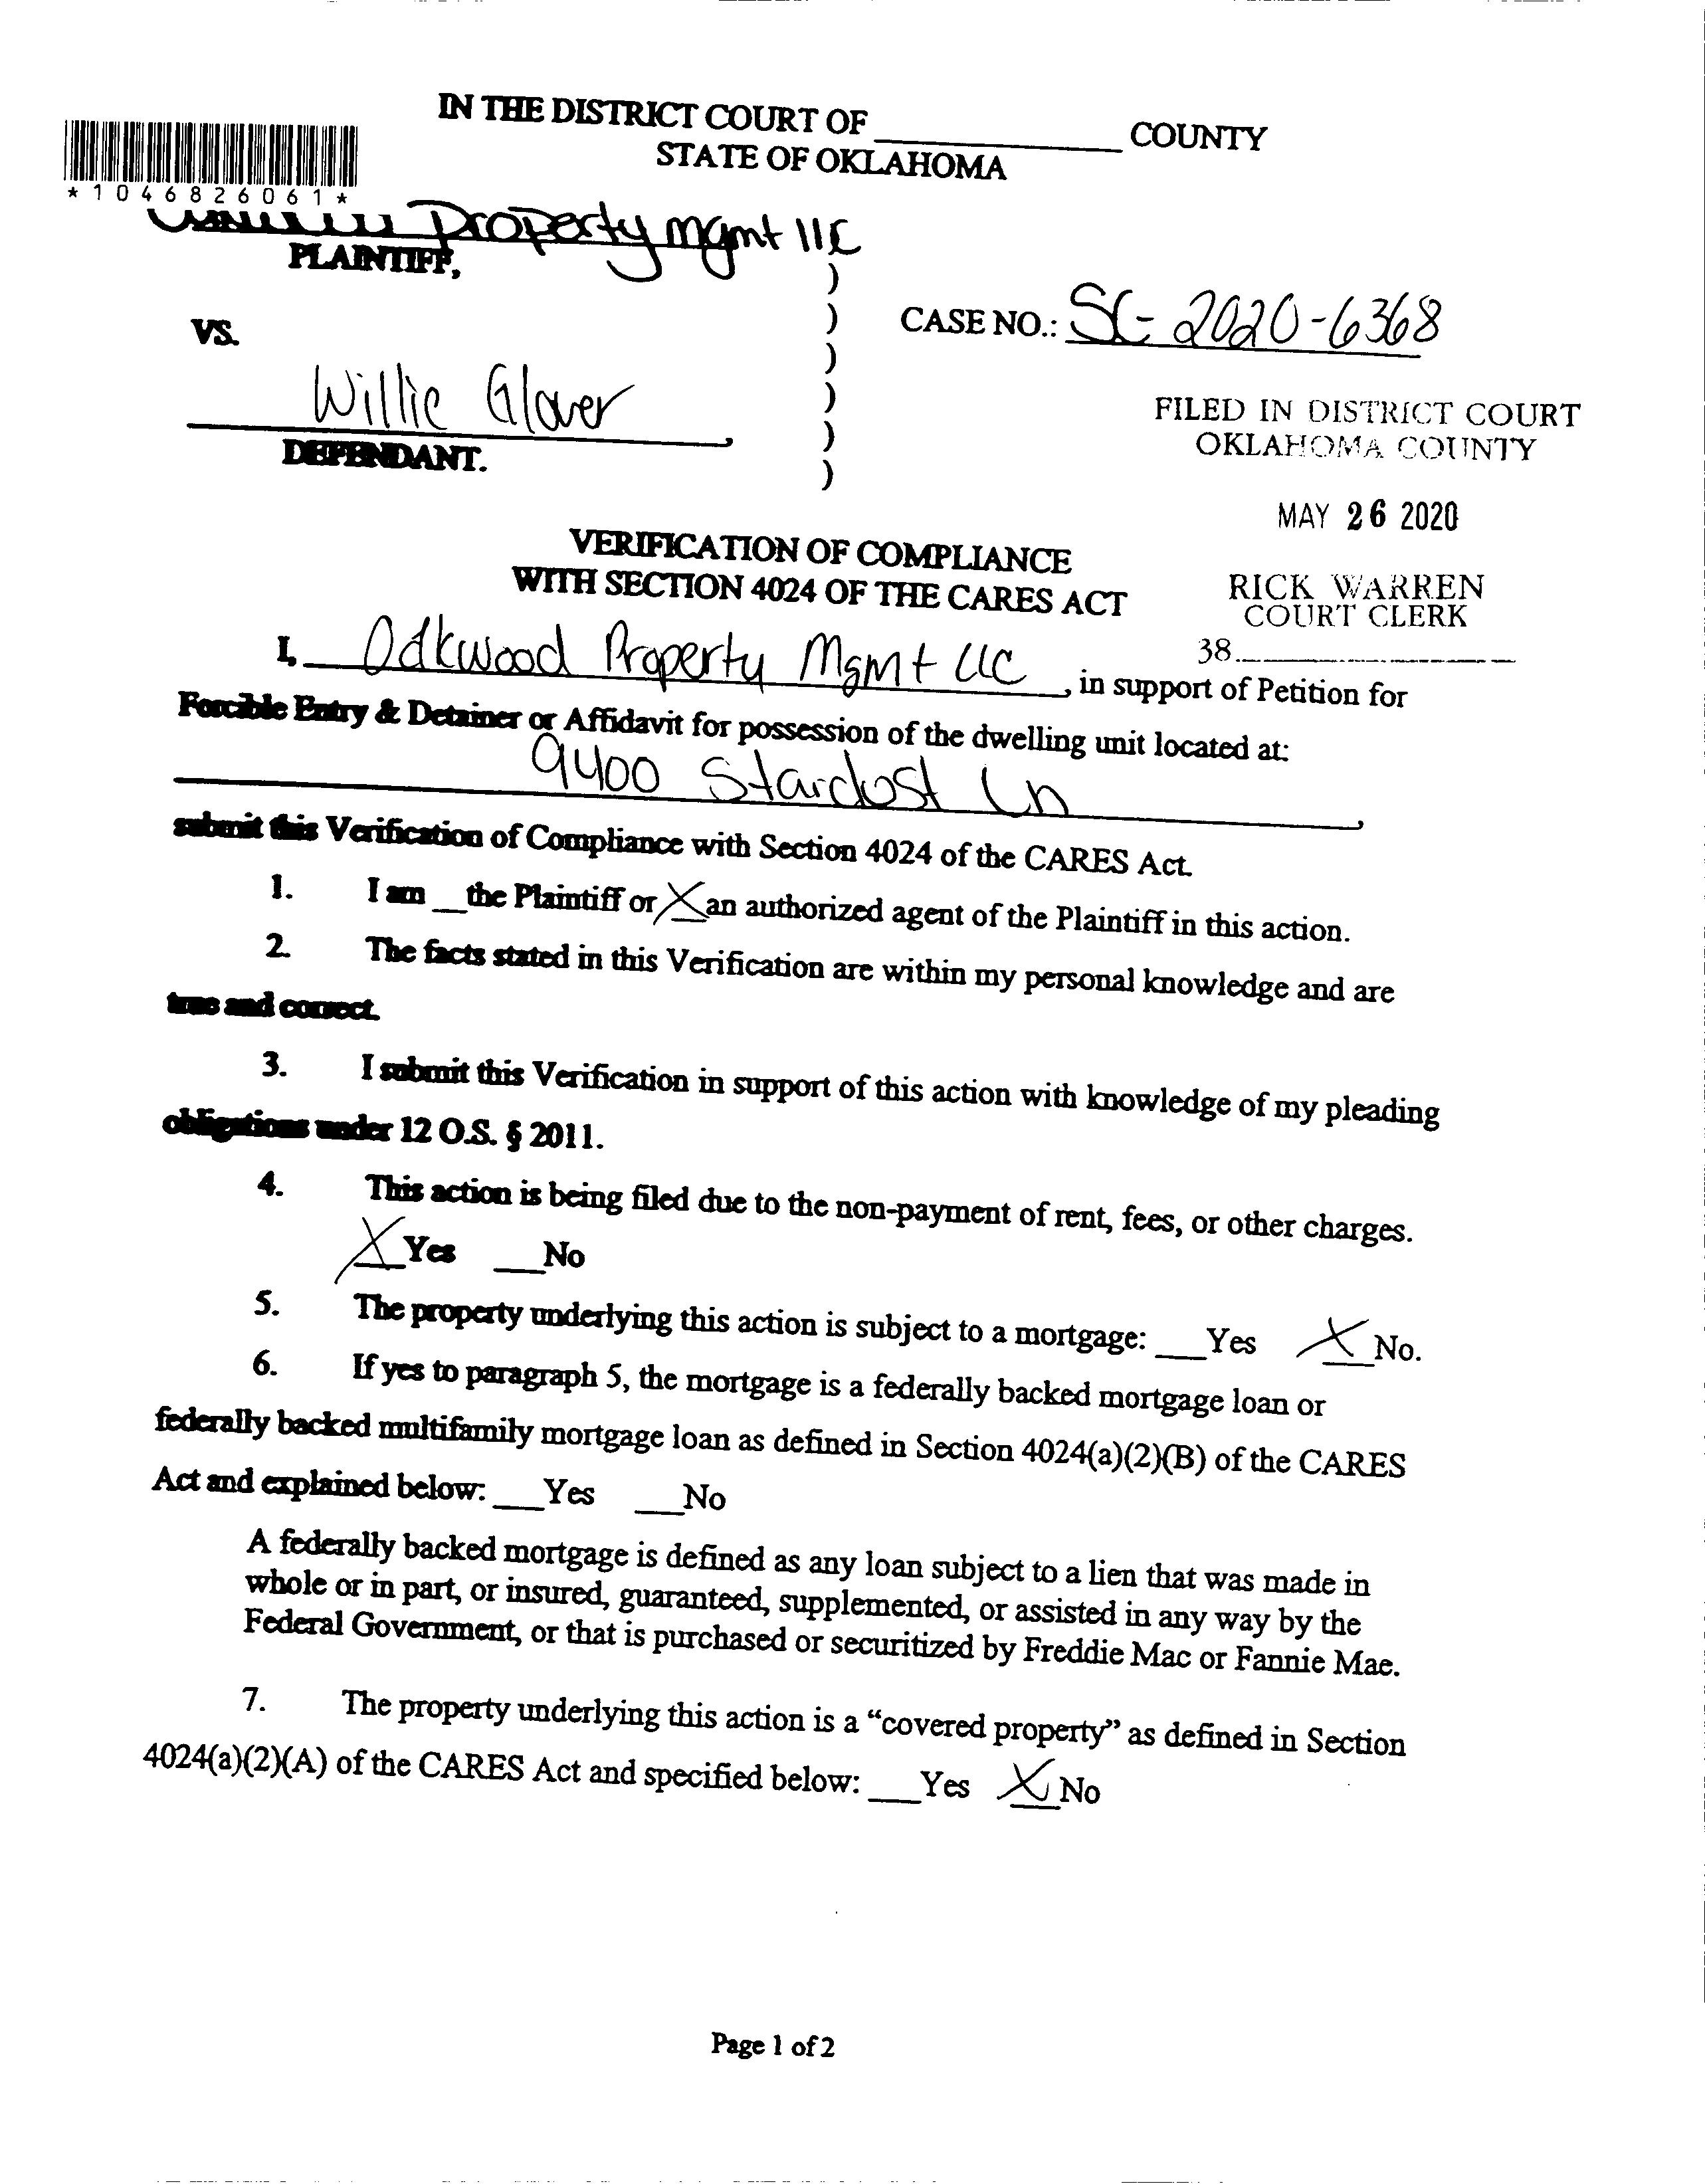 IN THE DISTRICT COURT OF ____________ COUNTY
STATE OF OKLAHOMA
*1046826061*
Property mgmt llc
PLAINTIFF,
)
VS.
) CASE NO.: SC-2020-6368
)
Willie Glover
)
FILED IN DISTRICT COURT
OKLAHOMA COUNTY
,
)
DEFENDANT.
)
MAY 26 2020
VERIFICATION OF COMPLIANCE
WITH SECTION 4024 OF THE CARES ACT
RICK WARREN
COURT CLERK
38
I, Oakwood Property Mgmt LLC, in support of Petition for
Forcible Entry & Detainer or Affidavit for possession of the dwelling unit located at:
9400 Stardust Ln,
submit this Verification of Compliance with Section 4024 of the CARES Act.
1. I am __the Plaintiff or X an authorized agent of the Plaintiff in this action.
2. The facts stated in this Verification are within my personal knowledge and are
true and correct.
3. I submit this Verification in support of this action with knowledge of my pleading
obligations under 12 O.S. § 2011.
4. This action is being filed due to the non-payment of rent, fees, or other charges.
X Yes ___No
5. The property underlying this action is subject to a mortgage: ___Yes X No.
6. If yes to paragraph 5, the mortgage is a federally backed mortgage loan or
federally backed multifamily mortgage loan as defined in Section 4024(a)(2)(B) of the CARES
Act and explained below: ___Yes ___No
A federally backed mortgage is defined as any loan subject to a lien that was made in
whole or in part, or insured, guaranteed, supplemented, or assisted in any way by the
Federal Government, or that is purchased or securitized by Freddie Mac or Fannie Mae.
7. The property underlying this action is a “covered property” as defined in Section
4024(a)(2)(A) of the CARES Act and specified below: ___Yes X No
Page 1 of 2